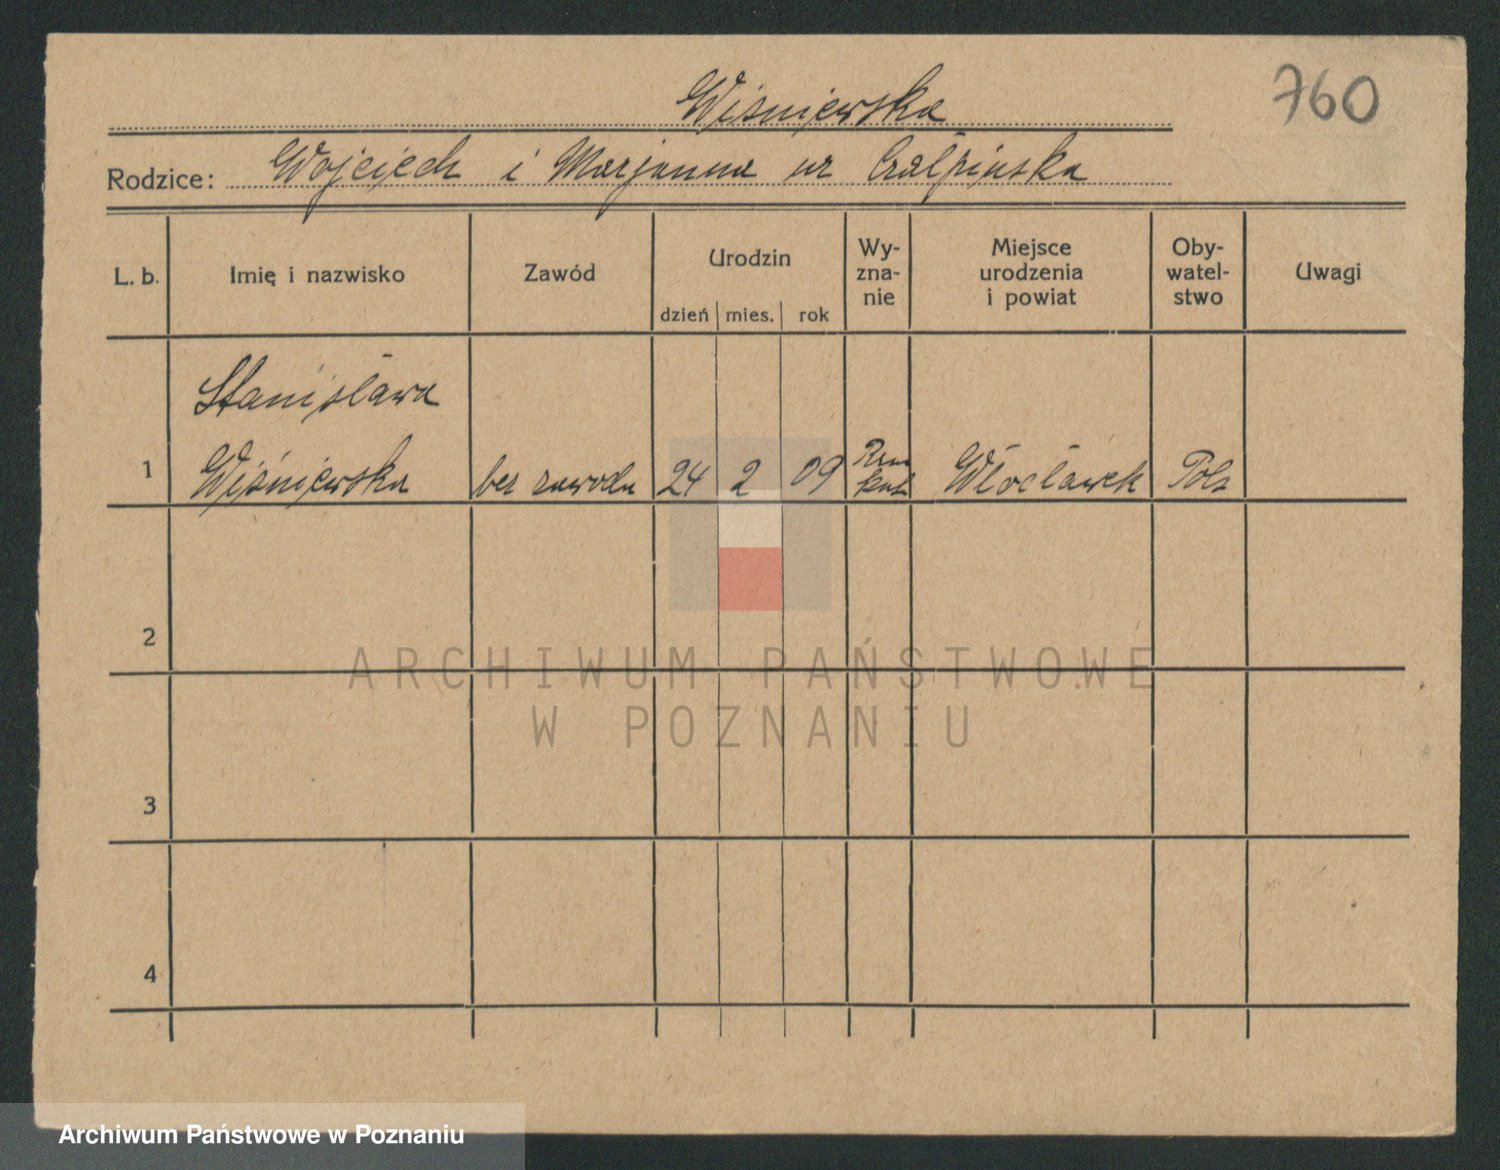 760
Wiśniewska
Rodzice: Wojciech i Marjanna ur
L. b. Imię i nazwisko Zawód Urodzin dzień mies. rok Wy-zna-nie Miejsce urodzenia i powiat Oby-watel-stwo Uwagi
Stanisława
1 Wiśniewska bez zawodu 24 2 09 Rzm kat Włocławek Pols
2
ARCHIWUM PAŃSTWOWE
W POZNANIU
3
4
Archiwum Państwowe w Poznaniu